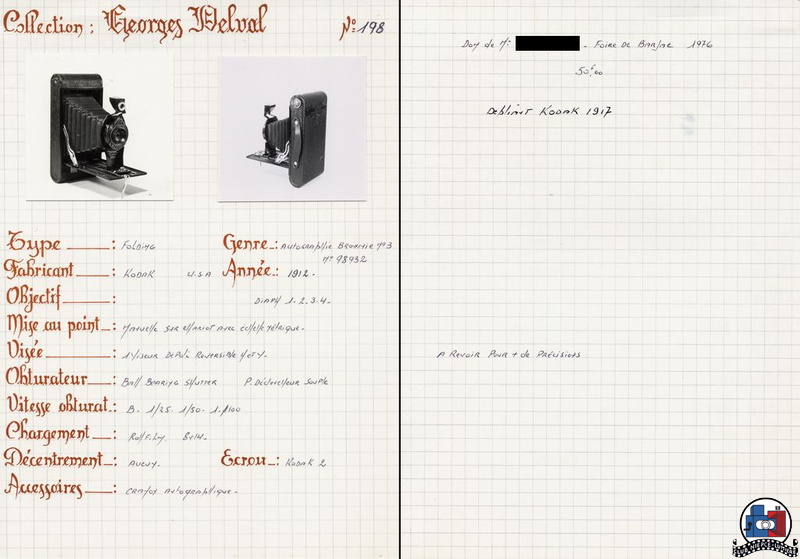 Collection : Georges Delval N°: 198
Type : Folding Genre : Autographic Brownie N°3
N° 98932
Fabricant : Kodak U.S.A Année : 1912.
Objectif : Diaph 1.2.3.4.
Mise au point : Manuelle sur chariot avec échelle métrique.
Visée : Viseur Dépoli Reversible
Obturateur : Ball Bearing Shutter P. Déclencheur Souple
Vitesse obturat. : B. 1/25. 1/50. 1/100
Chargement : Roll Film.
Décentrement : Aucun. Ecrou : Kodak 2
Accessoires : Crayon Autographique.
Don de Mr : - Foire de 1976
50f,00
Kodak 1917
A Revoir Pour + de Précisions